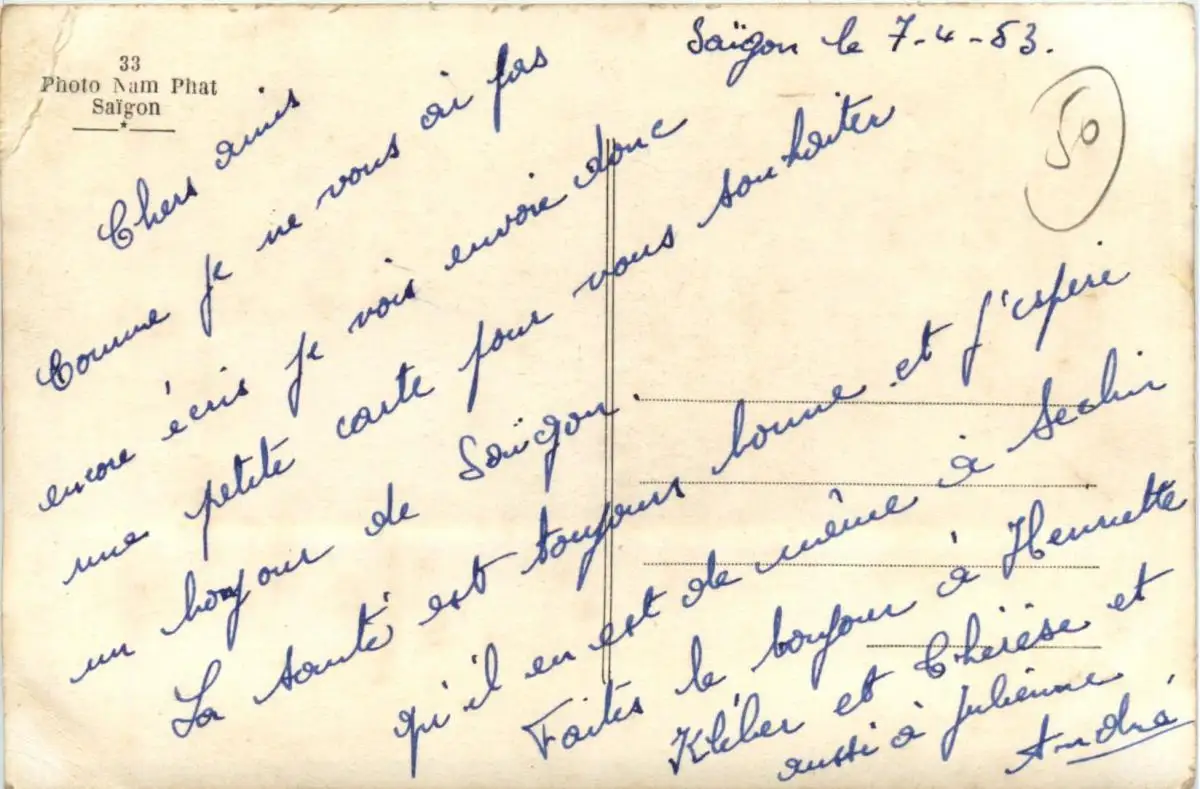 33
Photo Nam Phat
Saïgon
Saïgon le 7-4-53.
50
Chers amis
Comme je ne vous ai pas
encore écris je vois envoie donc
une petite carte pour vous souhaiter
un bonjour de Saïgon.
La santé est toujours bonne et j'espère
qu'il en est de même à Seclin
Faites le bonjour à Henriette
Kléber et Thérèse et
aussi à Julienne
André